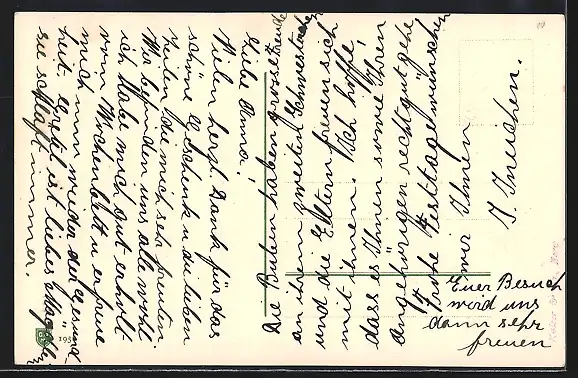 Liebe Anna!
Vielen herzl. Dank für das
schöne Geschenk u. die lieben
Zeilen, die mich sehr freuten.
Wir befinden uns alle wohl
ich habe mich gut erholt
vom Wochenbett u. erfreue
mich nun wieder der Gesund-
heit. Gretel ist liebes Mägdlein
sie schläft immer.
Die Buben haben grosse Freude
an ihrem zweiten Schwesterchen
und die Eltern freuen sich
mit ihnen. Ich hoffe,
dass es Ihnen sowie Ihren
Angehörigen recht gut gehe
Frohe Festtage wünschen
wir Ihnen
J. Ineichen.
Euer Besuch
wird uns
dann sehr
freuen
193